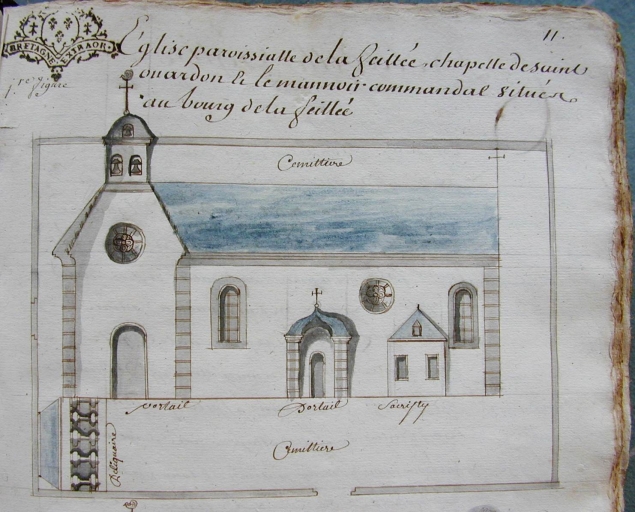 11.
BRETAGNE EXTRAOR
Église paroissialle de la feillée, chapelle de saint
ouardon & le mannoir commandal situés
au bourg de la feillée
Cemittiere
portail
Portail
Sacristy
Reliquaire
Cemittiere